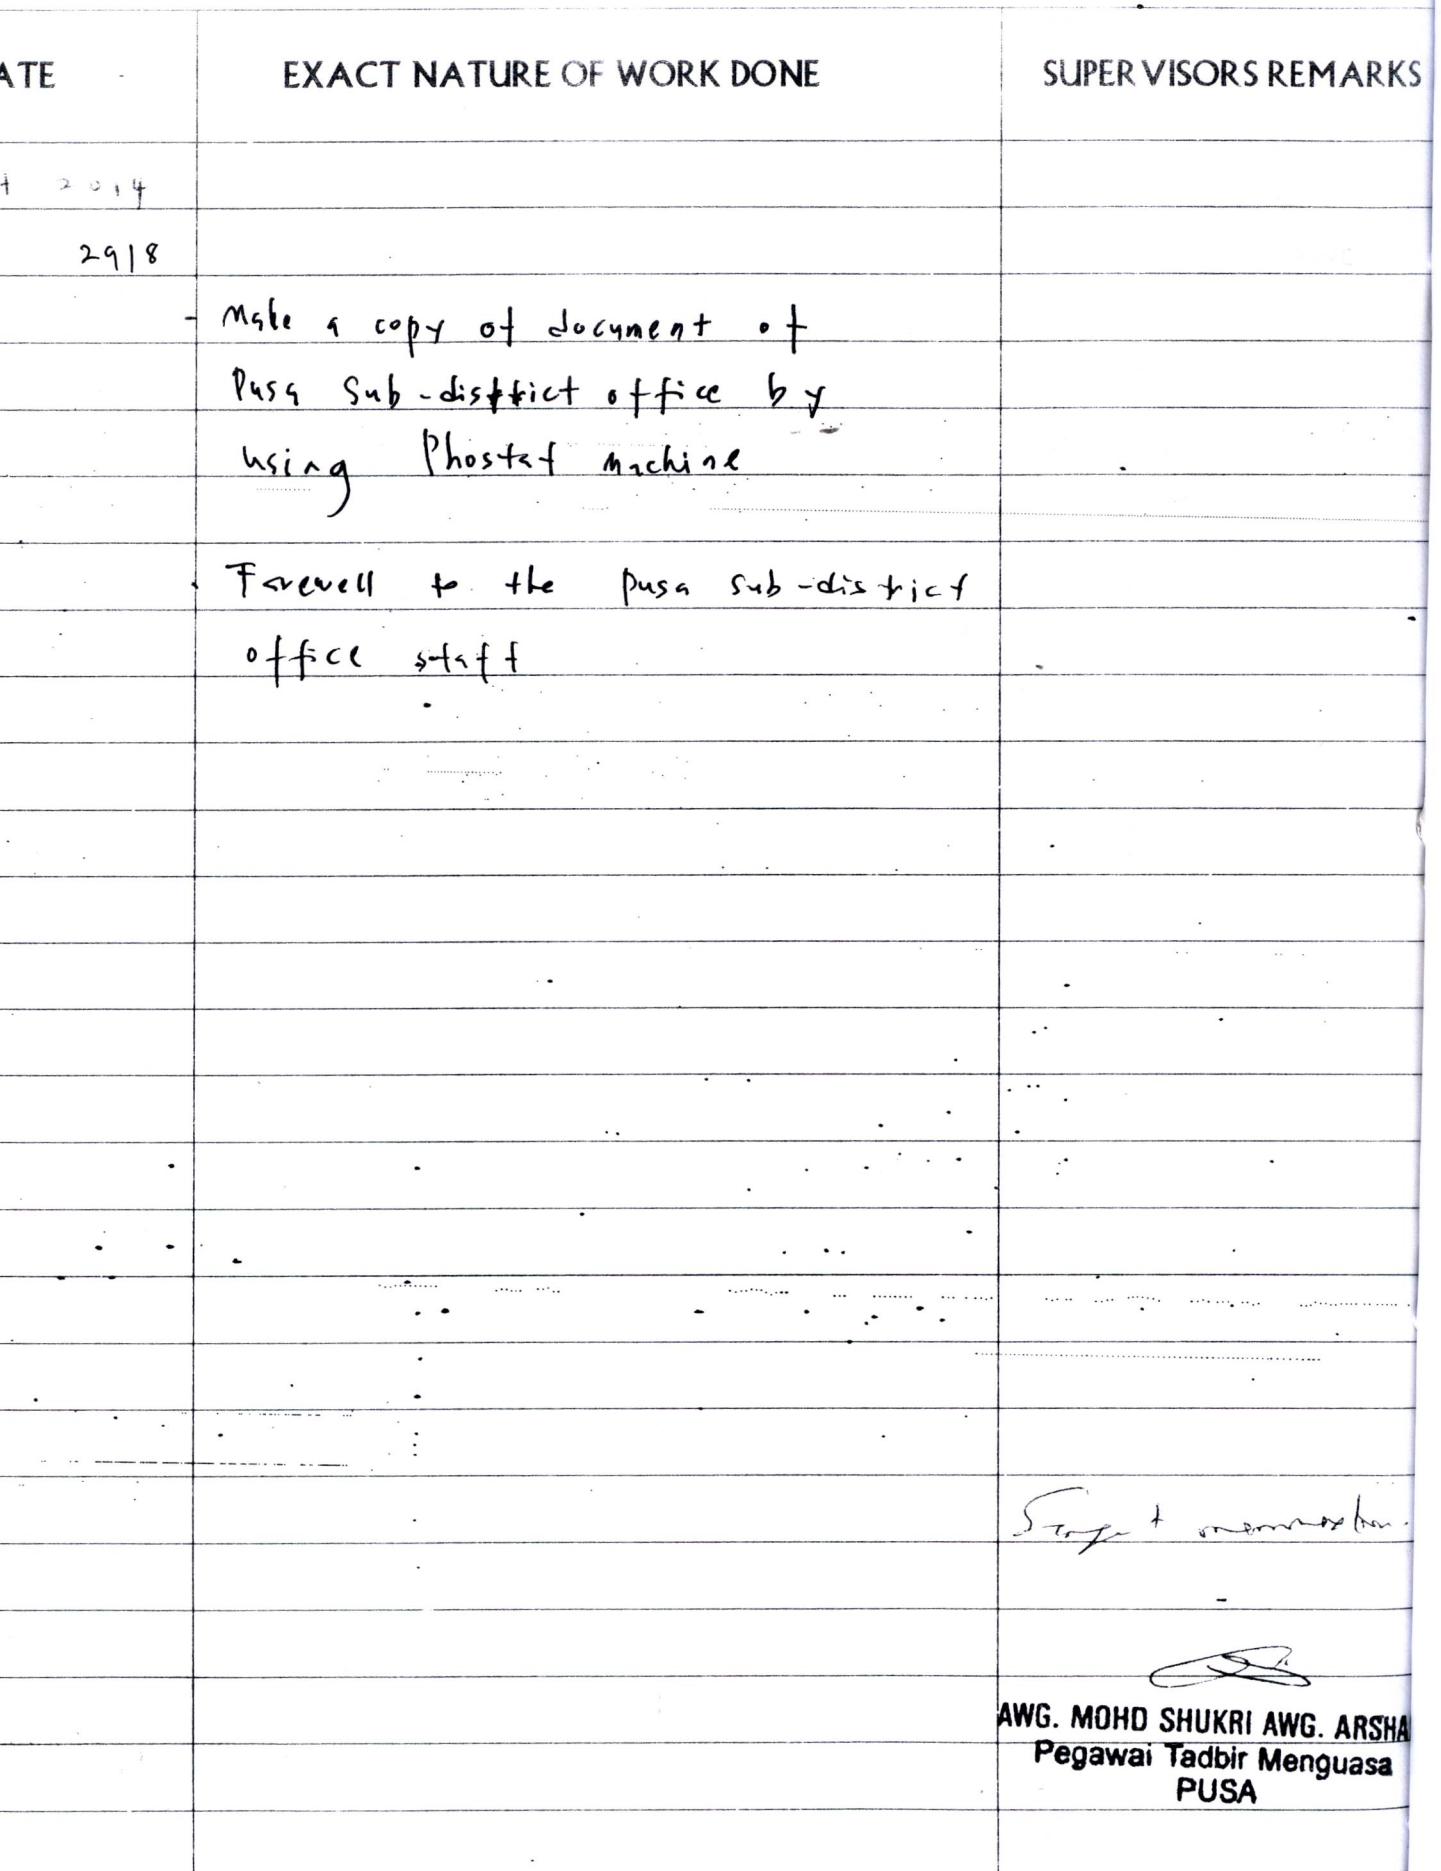 ATE EXACT NATURE OF WORK DONE SUPERVISORS REMARKS
t 2014
29/8
- Make a copy of document of
Pusa Sub-district office by
using Phostat machine
- Farewell to the pusa sub-district
office staff
AWG. MOHD SHUKRI AWG. ARSHA
Pegawai Tadbir Menguasa
PUSA